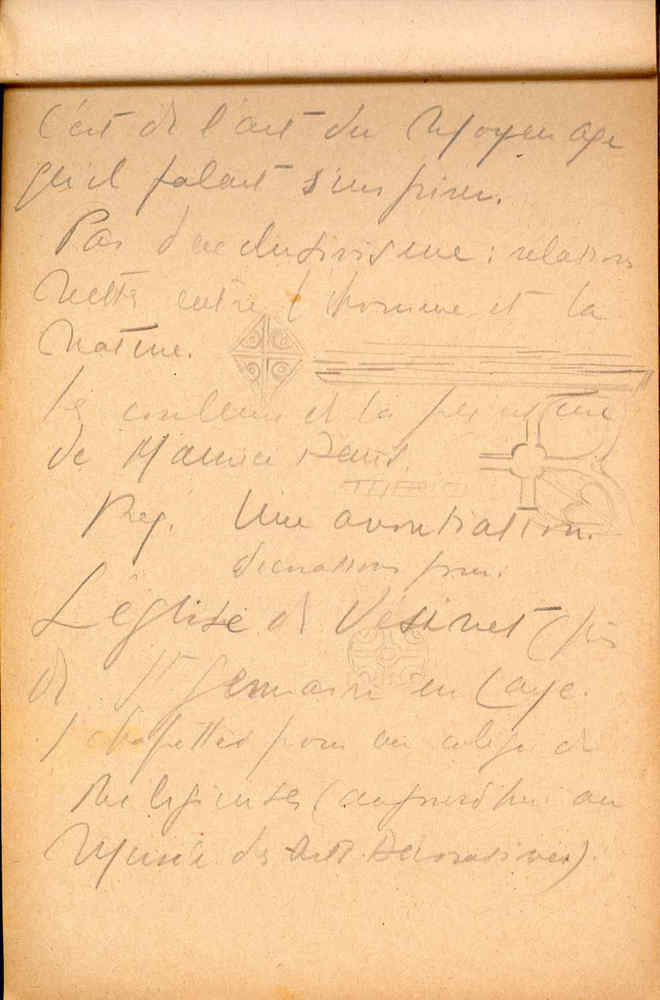 C'est de l'art du Moyen age
qu'il falait s'inspirer.
Pas d'exclusivisme : relations
nettes entre l'homme et la
nature.
les couleurs et la
de Maurice Denis
Reg. Une
décorations pour:
L'église de Vésinet (près
de St Germain en Laye.
1 chapelles pour un collège de
Religieuses (aujourd'hui au
Musée des Arts Décoratives).